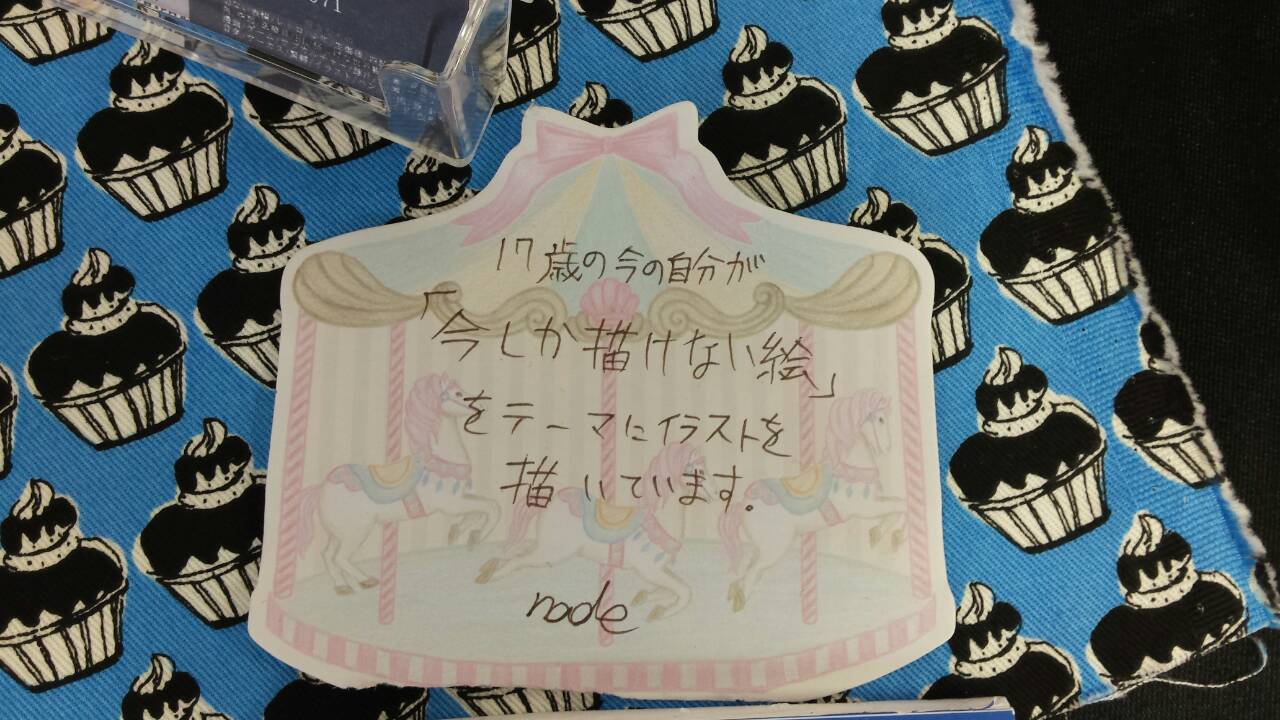 17歳の今の自分が
「今しか描けない絵」
をテーマにイラストを
描いています。
node